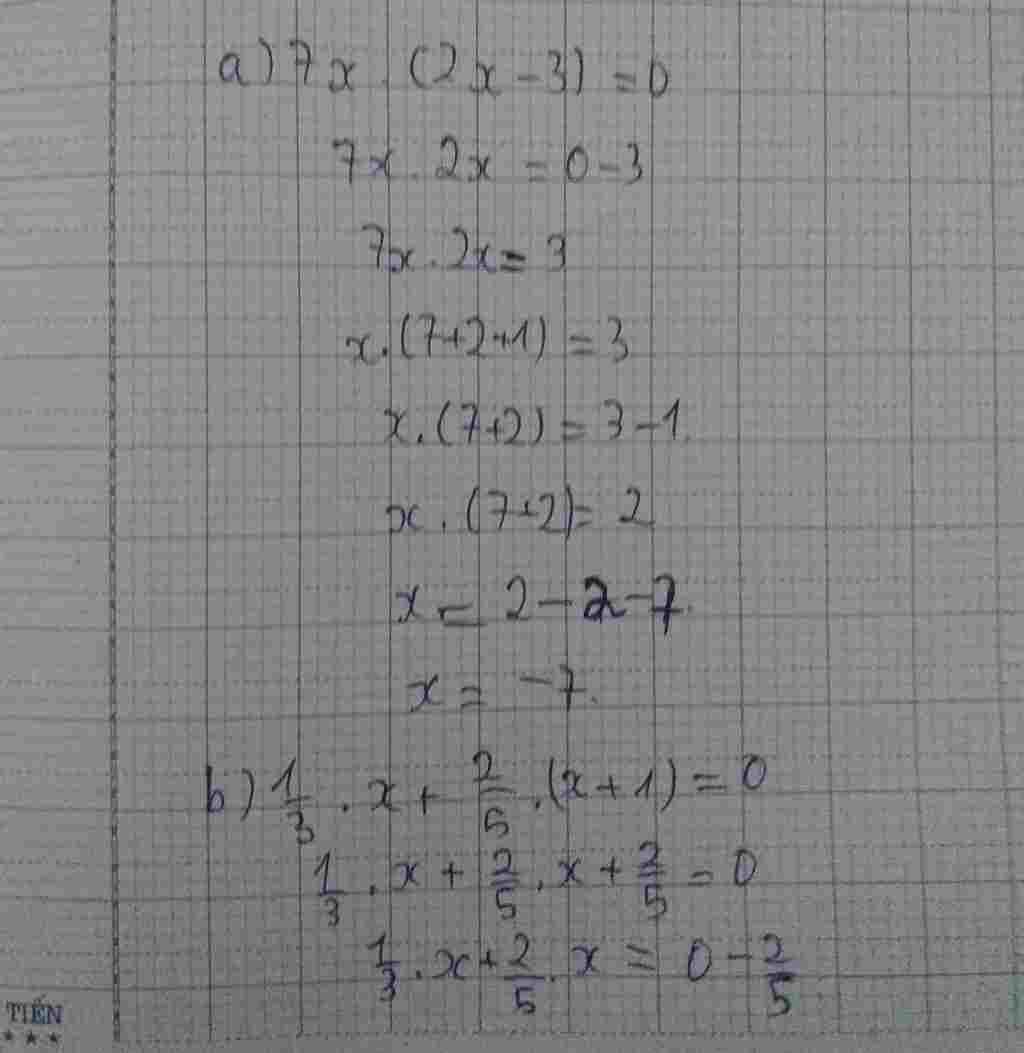 a) 7x (2x - 3) = 0
7x . 2x = 0 - 3
7x . 2x = 3
x . (7+2+1) = 3
x . (7+2) = 3 - 1
x . (7+2) = 2
x = 2 - 2 - 7.
x = -7.
b) 1/3 . x + 2/5 . (x + 1) = 0
1/3 . x + 2/5 . x + 2/5 = 0
1/3 . x + 2/5 . x = 0 - 2/5
TIẾN
★ ★ ★